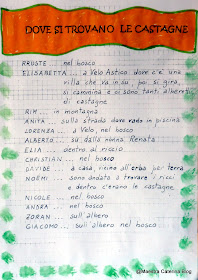 DOVE SI TROVANO LE CASTAGNE
RRUSTE ... nel bosco
ELISABETTA .... a Velo Astico dove c'è una
villa che va in su, poi si gira,
si cammina e ci sono tanti alberetti
di castagne
RIM ... in montagna
ANITA ... sulla strada dove vado in piscina
LORENZA ... a Velo, nel bosco
ALBERTO ... su dalla nonna Renata
ELIA ... dentro al riccio
CHRISTIAN .... nel bosco
DAVIDE ... a casa, vicino all'orto per terra
NOEMI ... sono andata a trovare i ricci
e dentro c'erano le castagne
NICOLE ... nel bosco
ANDREA ... nel bosco
ZORAN ... sull'albero
GIACOMO ... sull'albero nel bosco
© Maestra Caterina Blog